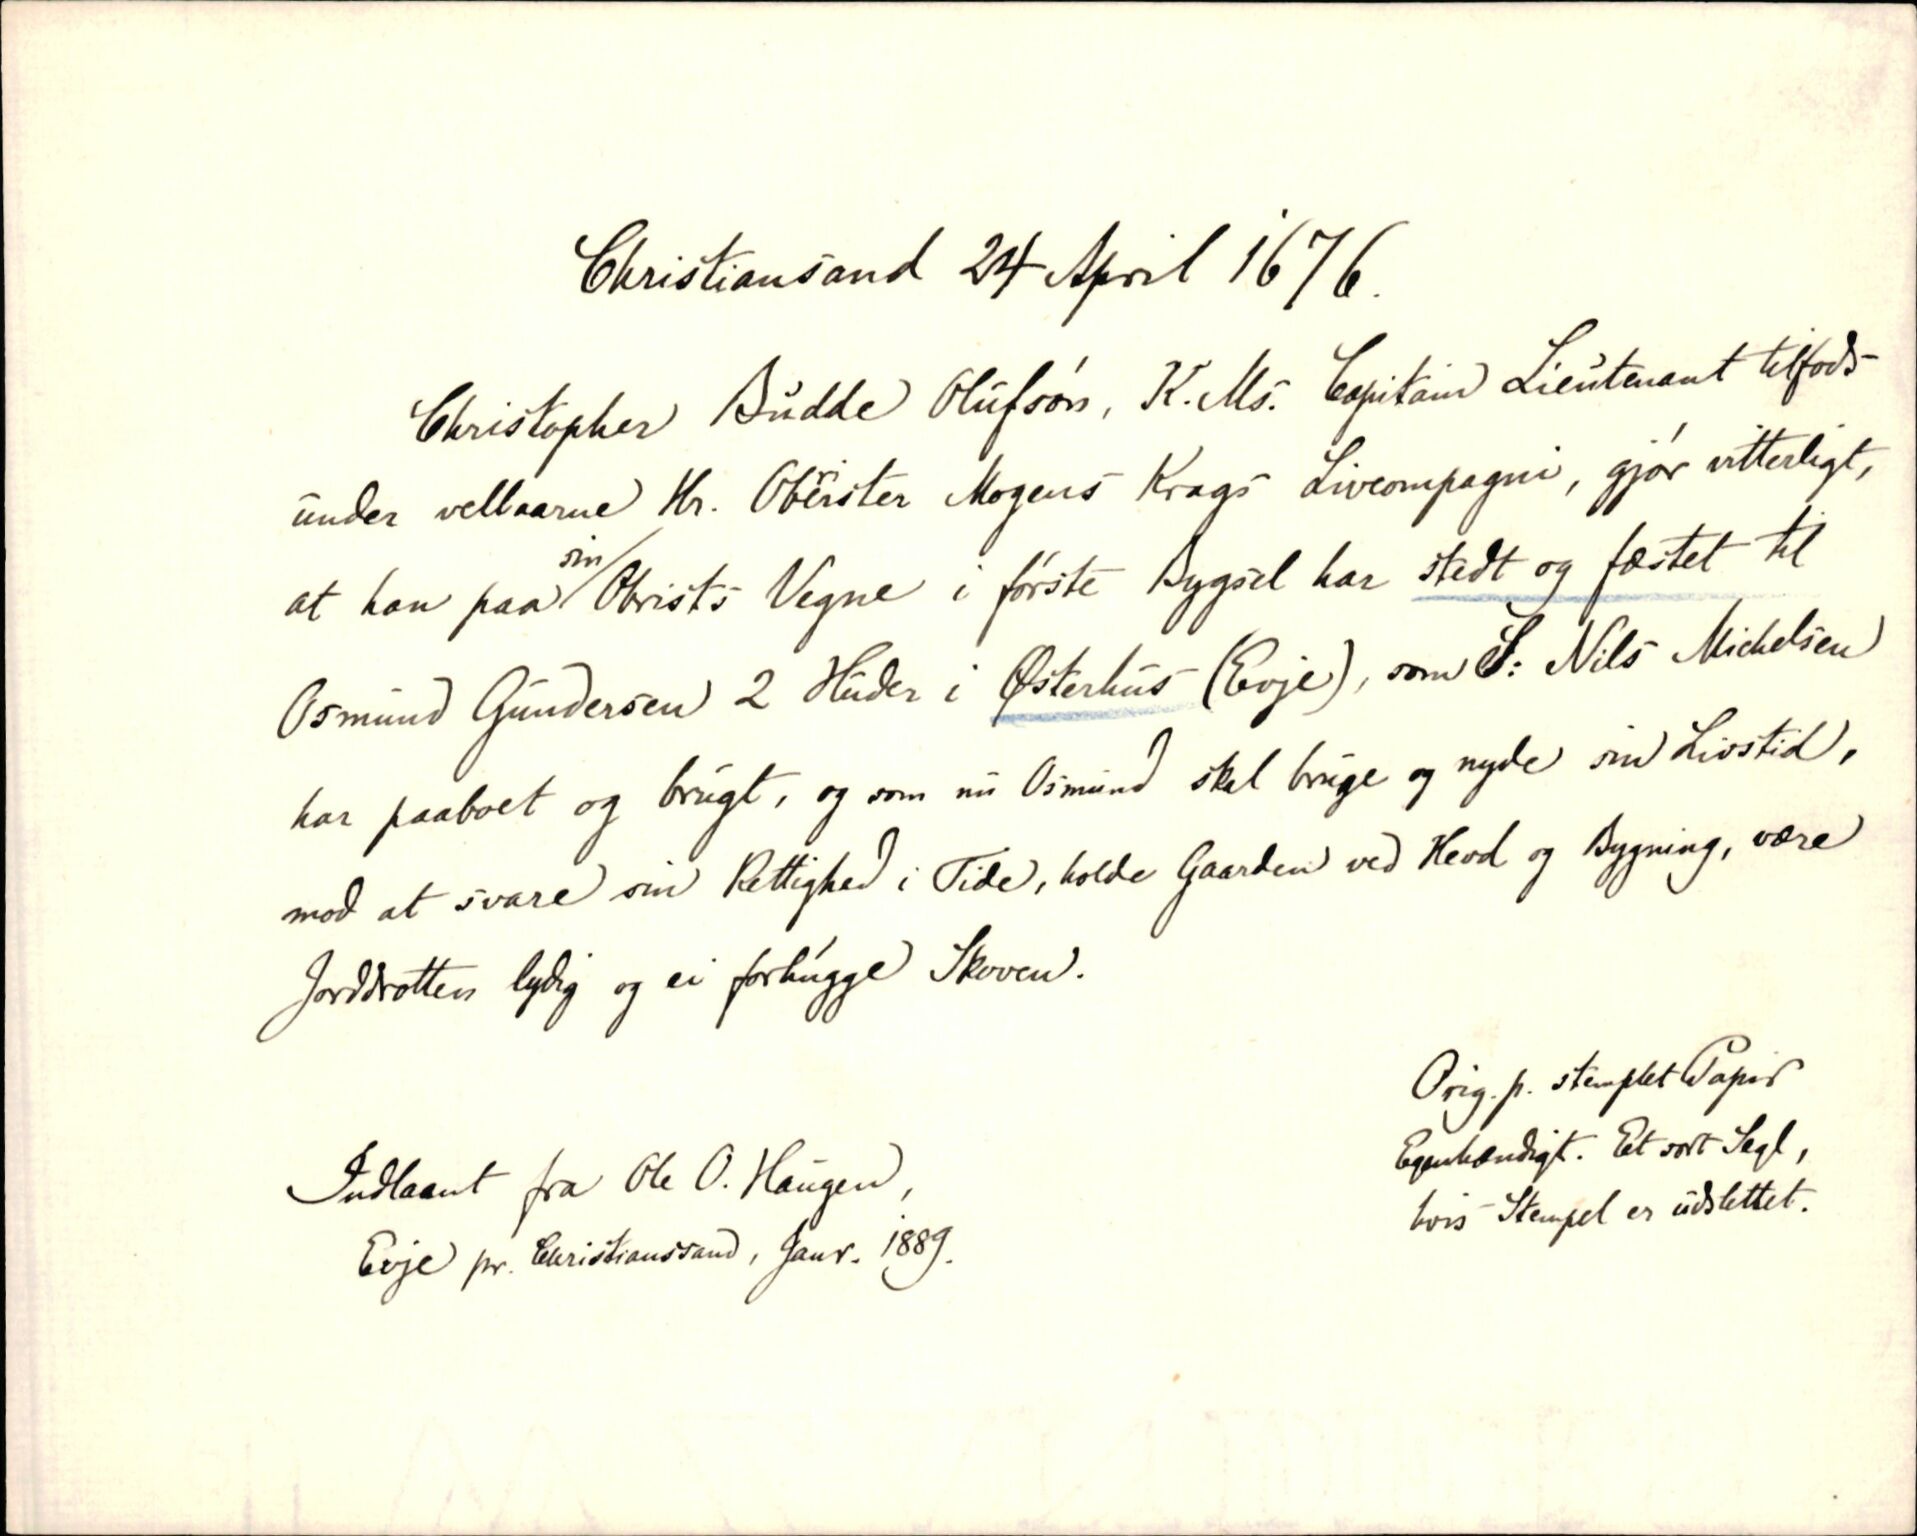 Christiansand 24 April 1676.
Christopher Budde Olufsøn, K. Ms. Capitain Lieutenant tilfods
under velbaarne Hr. Obrister Mogens Krags Livcompagni, gjør vitterligt,
at han paa sin Obrists Vegne i første Bygsel har stedt og fæstet til
Osmund Gundersen 2 Huder i Østerhus (Evje), som S: Nils Michelsen
har paaboet og brugt, og som nu Osmund skal bruge og nyde sin Livstid,
mod at svare sin Rettighed i Tide, holde Gaarden ved Hevd og Bygning, være
Jorddrotten lydig og ei forhugge Skoven.
Orig. p. stemplet Papir
Egenhændigt. Et sort Segl,
hvis Stempel er udslettet.
Indlaant fra Ole O. Haugen,
Evje pr. Christianssand, Janr. 1889.